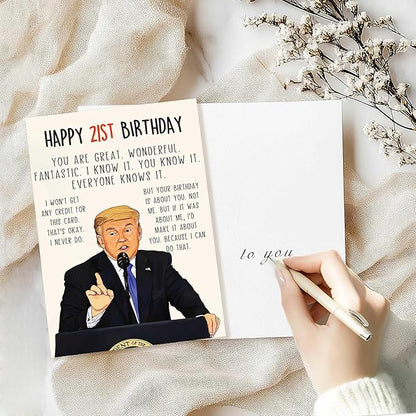 HAPPY 21ST BIRTHDAY
YOU ARE GREAT. WONDERFUL.
FANTASTIC. I KNOW IT. YOU KNOW IT.
EVERYONE KNOWS IT.
I WON'T GET
ANY CREDIT FOR
THIS CARD.
THAT'S OKAY.
I NEVER DO.
BUT YOUR BIRTHDAY
IS ABOUT YOU. NOT
ME. BUT IF IT WAS
ABOUT ME, I'D
MAKE IT ABOUT
YOU. BECAUSE I CAN
DO THAT.
OF THE
to you